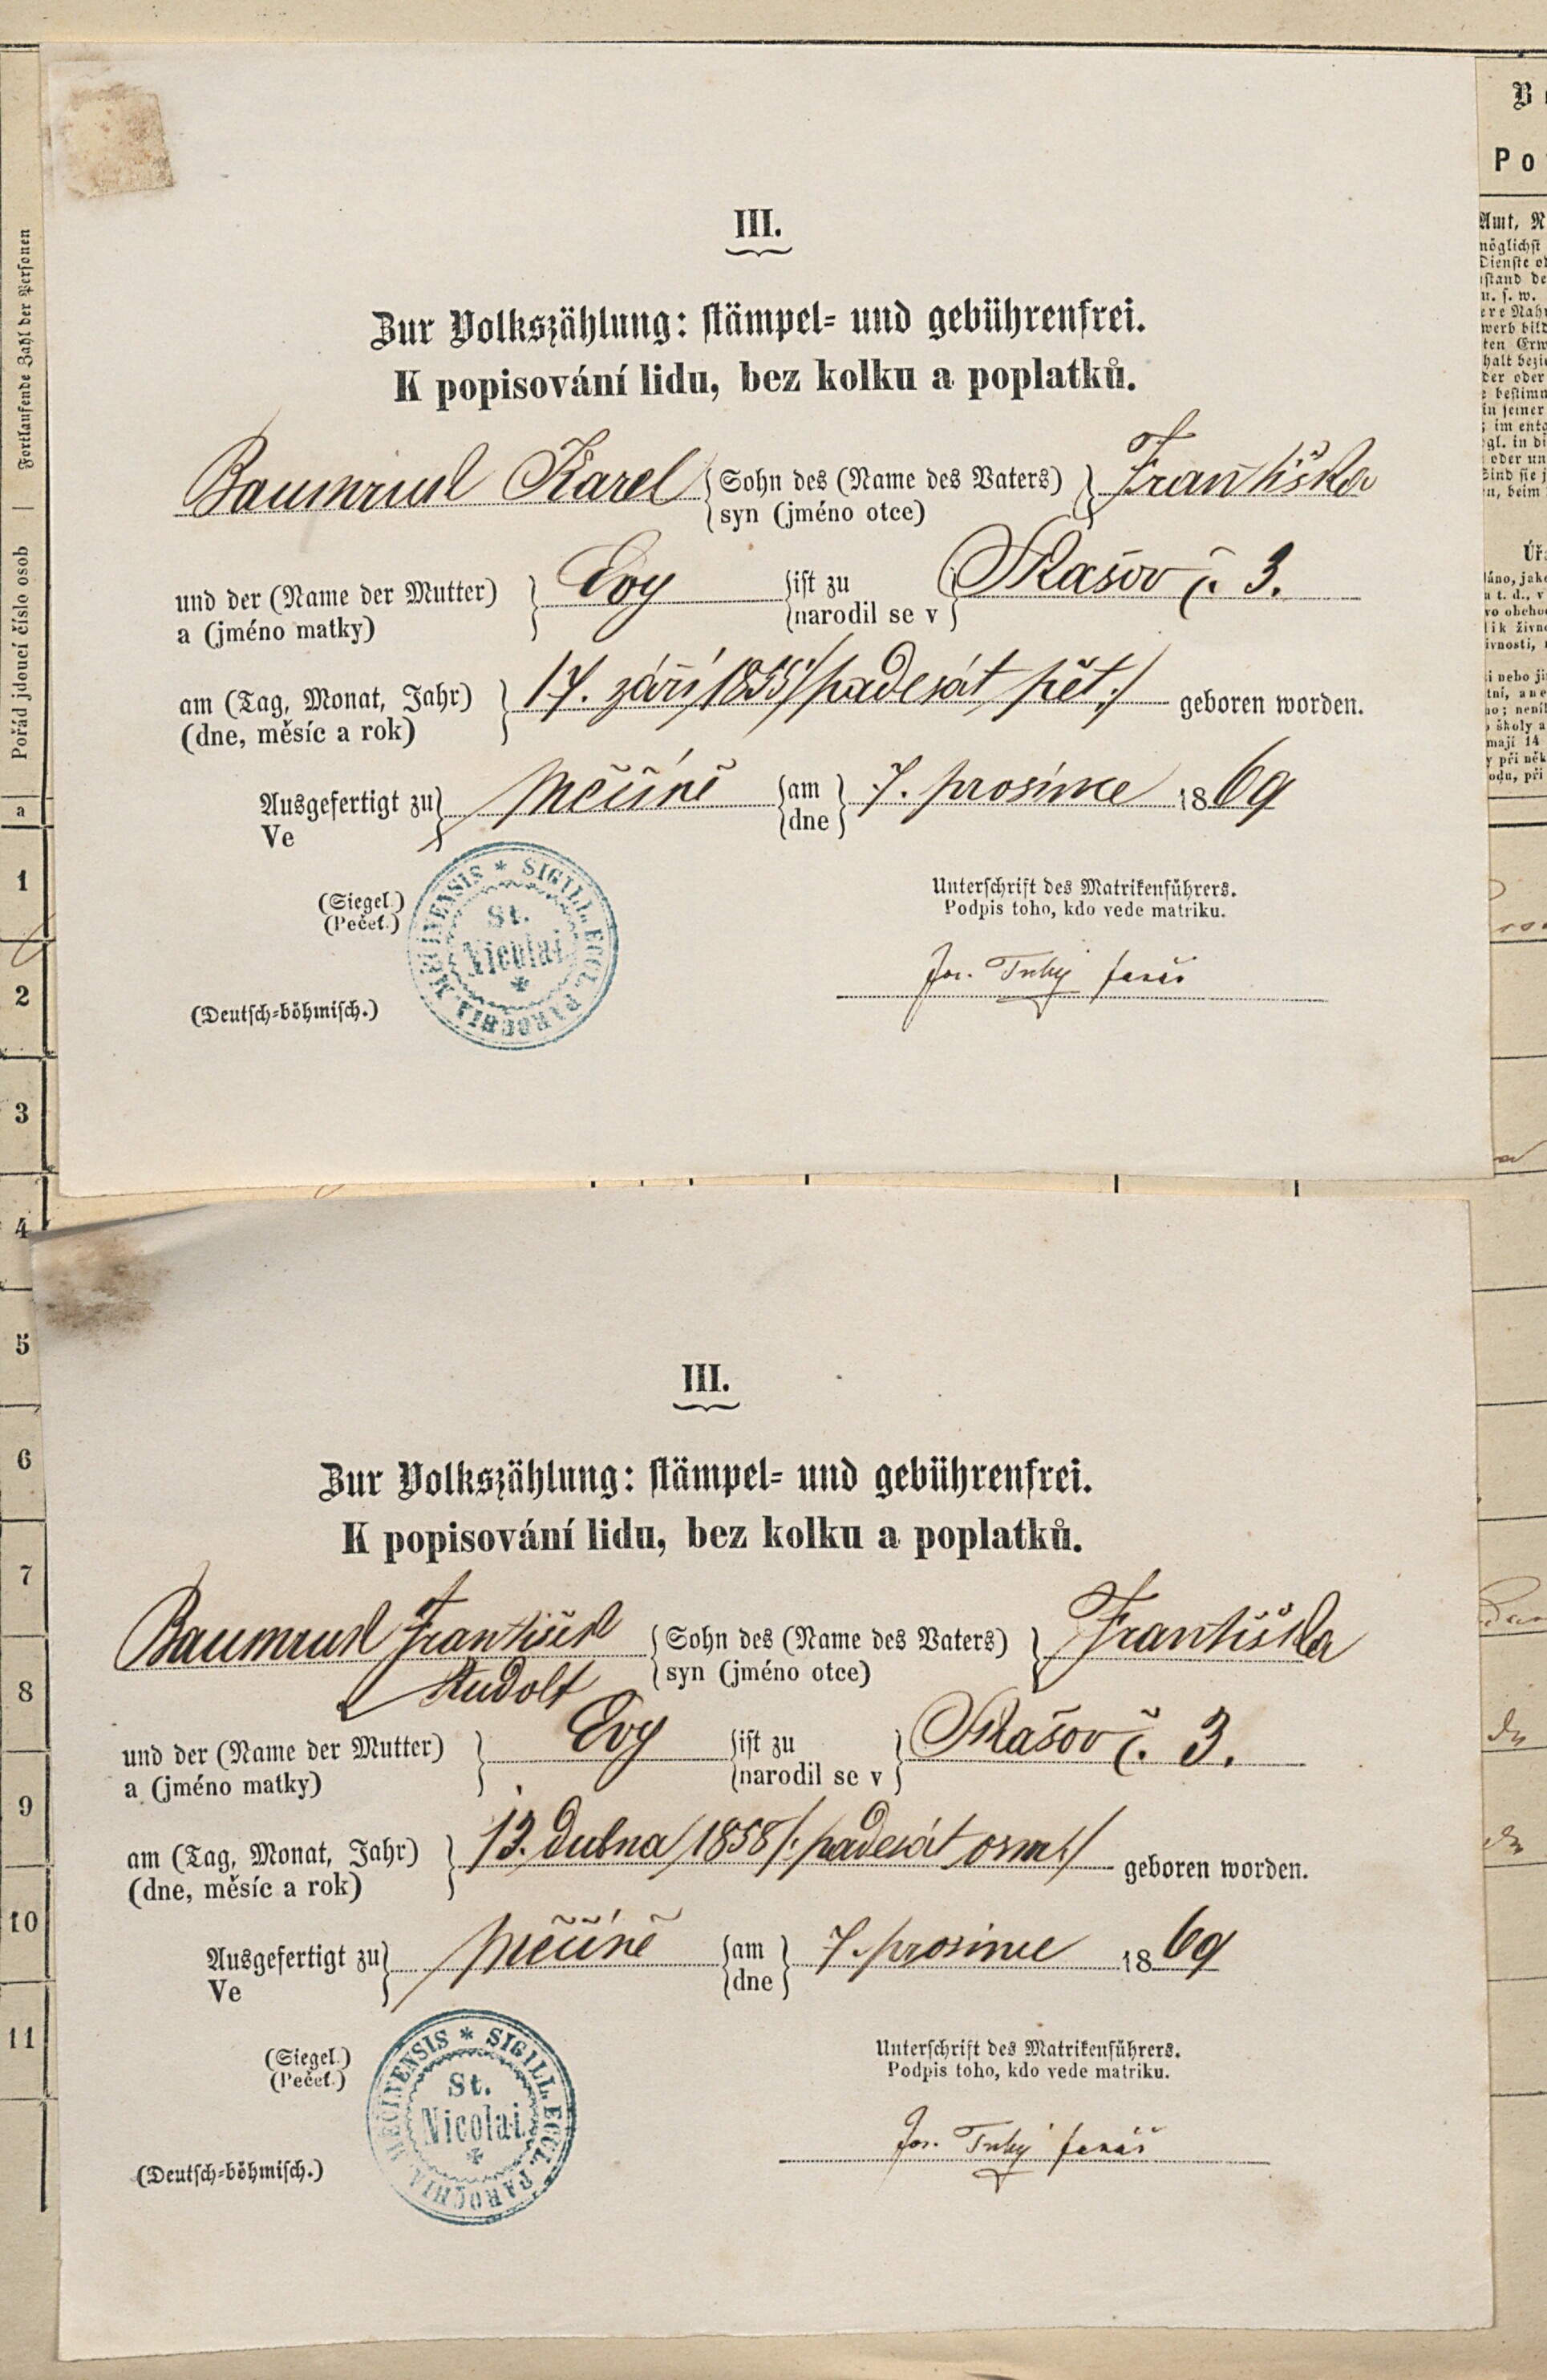 III.
Zur Volkszählung: stämpel- und gebührenfrei.
K popisování lidu, bez kolku a poplatků.
Baumrukl Karel Sohn des (Name des Vaters) Františka
syn (jméno otce)
und der (Name der Mutter) Evy ist zu Skašov č. 3.
a (jméno matky) narodil se v
am (Tag, Monat, Jahr) 17. září 1855 /: padesát pět :/ geboren worden.
(dne, měsíc a rok)
Ausgefertigt zu Měčíně am 7. prosince 1869
Ve dne
(Siegel.)
(Pečeť.)
* SIGILL. ECCL. PAROCHIA. MĚČINENSIS
St.
Nicolai
Unterschrift des Matrikenführers.
Podpis toho, kdo vede matriku.
Jos. farář
(Deutsch-böhmisch.)
III.
Zur Volkszählung: stämpel- und gebührenfrei.
K popisování lidu, bez kolku a poplatků.
Baumrukl František Sohn des (Name des Vaters) Františka
Rudolf syn (jméno otce)
und der (Name der Mutter) Evy ist zu Skašov č. 3.
a (jméno matky) narodil se v
am (Tag, Monat, Jahr) 13. dubna 1858 /: padesát osm :/ geboren worden.
(dne, měsíc a rok)
Ausgefertigt zu Měčíně am 7. prosince 1869
Ve dne
(Siegel.)
(Pečeť.)
* SIGILL. ECCL. PAROCHIA. MĚČINENSIS
St.
Nicolai
Unterschrift des Matrikenführers.
Podpis toho, kdo vede matriku.
Jos. farář
(Deutsch-böhmisch.)
Fortlaufende Zahl der Personen
Pořád jdoucí číslo osob
a
1
2
3
4
5
6
7
8
9
10
11